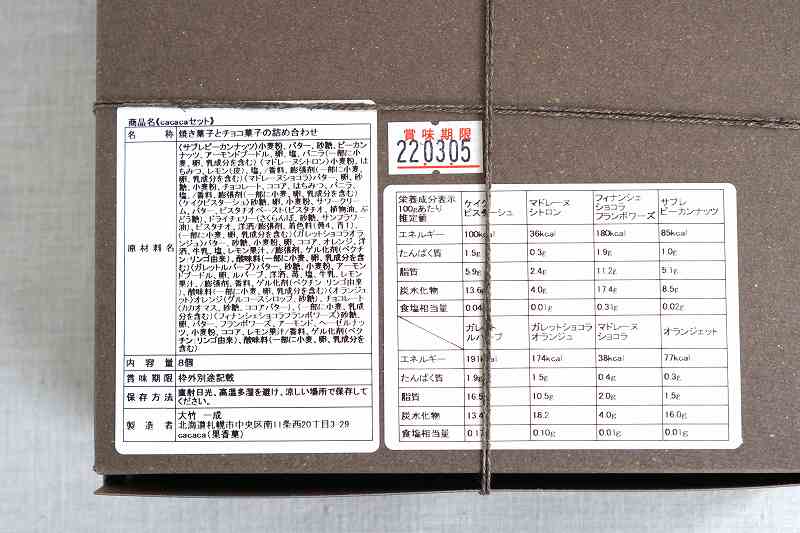 商品名《cacacaセット》
名称 焼き菓子とチョコ菓子の詰め合わせ
原材料名
〈サブレピーカンナッツ〉小麦粉、バター、砂糖、ピーカン
ナッツ、アーモンドプードル、卵、塩、バニラ(一部に小
麦、卵、乳成分を含む)〈マドレーヌシトロン〉小麦粉、は
ちみつ、レモン(皮)、塩、/香料、膨張剤(一部に小麦、
卵、乳成分を含む)〈マドレーヌショコラ〉バター、卵、砂
糖、小麦粉、チョコレート、ココア、はちみつ、バニラ、
塩/香料、膨張剤(一部に小麦、卵、乳成分を含む)
〈ケイクピスターシュ〉砂糖、卵、小麦粉、サワークリー
ム、バター、ピスタチオペースト(ピスタチオ、植物油、ぶ
どう糖)、ドライチェリー(さくらんぼ、砂糖、サンフラワー
油)、ピスタチオ、洋酒/膨張剤、着色料(黄4、青1)、
(一部に小麦、卵、乳成分を含む)〈ガレットショコラオラ
ンジュ〉バター、砂糖、小麦粉、卵、ココア、オレンジ、洋
酒、牛乳、塩、レモン果汁、/膨張剤、ゲル化剤(ペクチ
ン:リンゴ由来)、酸味料(一部に小麦、卵、乳成分を含
む)〈ガレットルバーブ〉バター、砂糖、小麦粉、アーモン
ドプードル、卵、ルバーブ、洋酒、苺、塩、牛乳、レモン
果汁/膨張剤、香料、ゲル化剤(ペクチン:リンゴ由来)、
酸味料(一部に小麦、卵、乳成分を含む)〈オランジェッ
ト〉オレンジ(グルコースシロップ、砂糖)、チョコレート
(カカオマス、砂糖、ココアバター)、(一部に小麦、卵、乳
成分を含む)〈フィナンシェショコラフランボワーズ〉砂糖、
卵、バター、フランボワーズ、アーモンド、ヘーゼルナッ
ツ、小麦粉、ココア、レモン果汁/香料、ゲル化剤(ペク
チン:リンゴ由来)、酸味料(一部に小麦、卵、乳成分を含
む)
内容量 8個
賞味期限 枠外別途記載
保存方法 直射日光、高温多湿を避け、涼しい場所で保存して
ください。
製造者 大竹 一成
北海道札幌市中央区南11条西20丁目3-29
cacaca(果香菓)
賞味期限
220305
栄養成分表示
100gあたり
推定値
ケイク
ピスターシュ
マドレーヌ
シトロン
フィナンシェ
ショコラ
フランボワーズ
サブレ
ピーカンナッツ
エネルギー 100kcal 36kcal 180kcal 85kcal
たんぱく質 1.5g 0.3g 1.9g 1.0g
脂質 5.9g 2.4g 11.2g 5.1g
炭水化物 13.6g 4.0g 17.4g 8.5g
食塩相当量 0.04 0.01g 0.31g 0.02g
ガレット
ルバーブ
ガレットショコラ
オランジュ
マドレーヌ
ショコラ
オランジェット
エネルギー 191kcal 174kcal 38kcal 77kcal
たんぱく質 1.9g 1.5g 0.4g 0.3g
脂質 16.5 10.5g 2.0g 1.5g
炭水化物 13.4 18.2 4.0g 16.0g
食塩相当量 0.10g 0.01g 0.01g